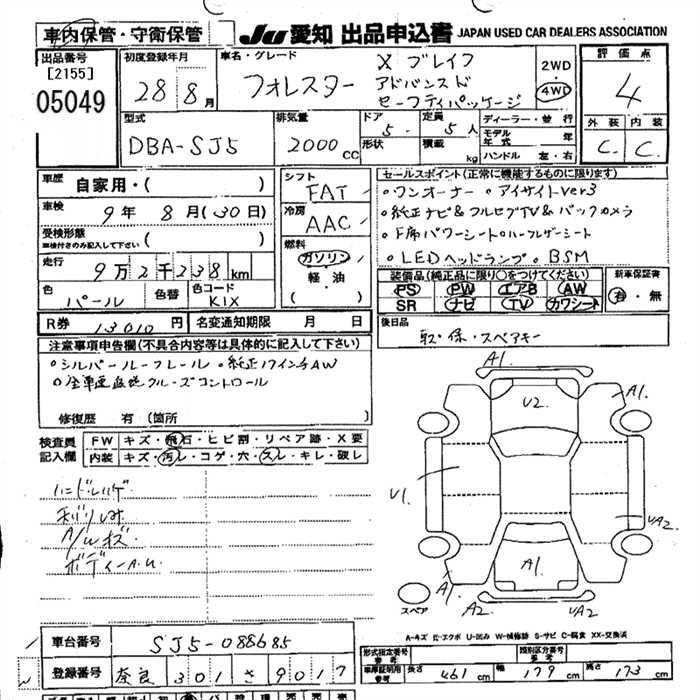 車内保管・守衛保管
JU 愛知 出品申込書 JAPAN USED CAR DEALERS ASSOCIATION
出品番号 [2155] 05049
初度登録年月 28年 8月
車名・グレード フォレスター X ブレイク アドバンスド セーフティパッケージ
2WD 4WD
評価点 4
外装 C 内装 C
型式 DBA-SJ5
排気量 2000 CC
ドア 5 形状
定員 5人 積載 kg
ディーラー・並行
モデル年式 年
ハンドル 左・右
車歴 自家用・( )
車検 9年 8月(30日)
受検形態 ※検付きのみ記入して下さい ( )
走行 9万2千238km
色 パール 色替 色コード K1X
シフト FAT
冷房 AAC
燃料 ガソリン・軽・油
セールスポイント(正常に機能するものに限ります)
・ワンオーナー ・アイサイトver3
・純正ナビ&フルセグTV&バックカメラ
・F席パワーシート・ハーフレザーシート
・LEDヘッドランプ ・BSM
装備品(純正品に限り○をつけてください)
PS PW エアB AW
SR ナビ TV カワシート
新車保証書 有・無
R券 13010円 名変通知期限 月 日
後日品 取・保・スペアキー
注意事項申告欄(不具合内容等は具体的に記入して下さい)
・シルバールーフレール ・純正17インチAW
・全車速追従クルーズコントロール
修復歴 有(箇所
検査員記入欄
FW キズ・飛石・ヒビ割・リペア跡・X要
内装 キズ・汚レ・コゲ・穴・スレ・キレ・破レ
A1 A1 U2 U1 UA2 A1 A1 A2 UA2
スペア
A-キズ E-エクボ U-凹み W-補修跡 S-サビ C-腐食 XX-交換済
車台番号 SJ5-088685
登録番号 奈良 301 さ 9017
形式指定番号 参考 類別区分番号 参考
車庫証明用参考 長さ 461cm 幅 179cm 高さ 173cm